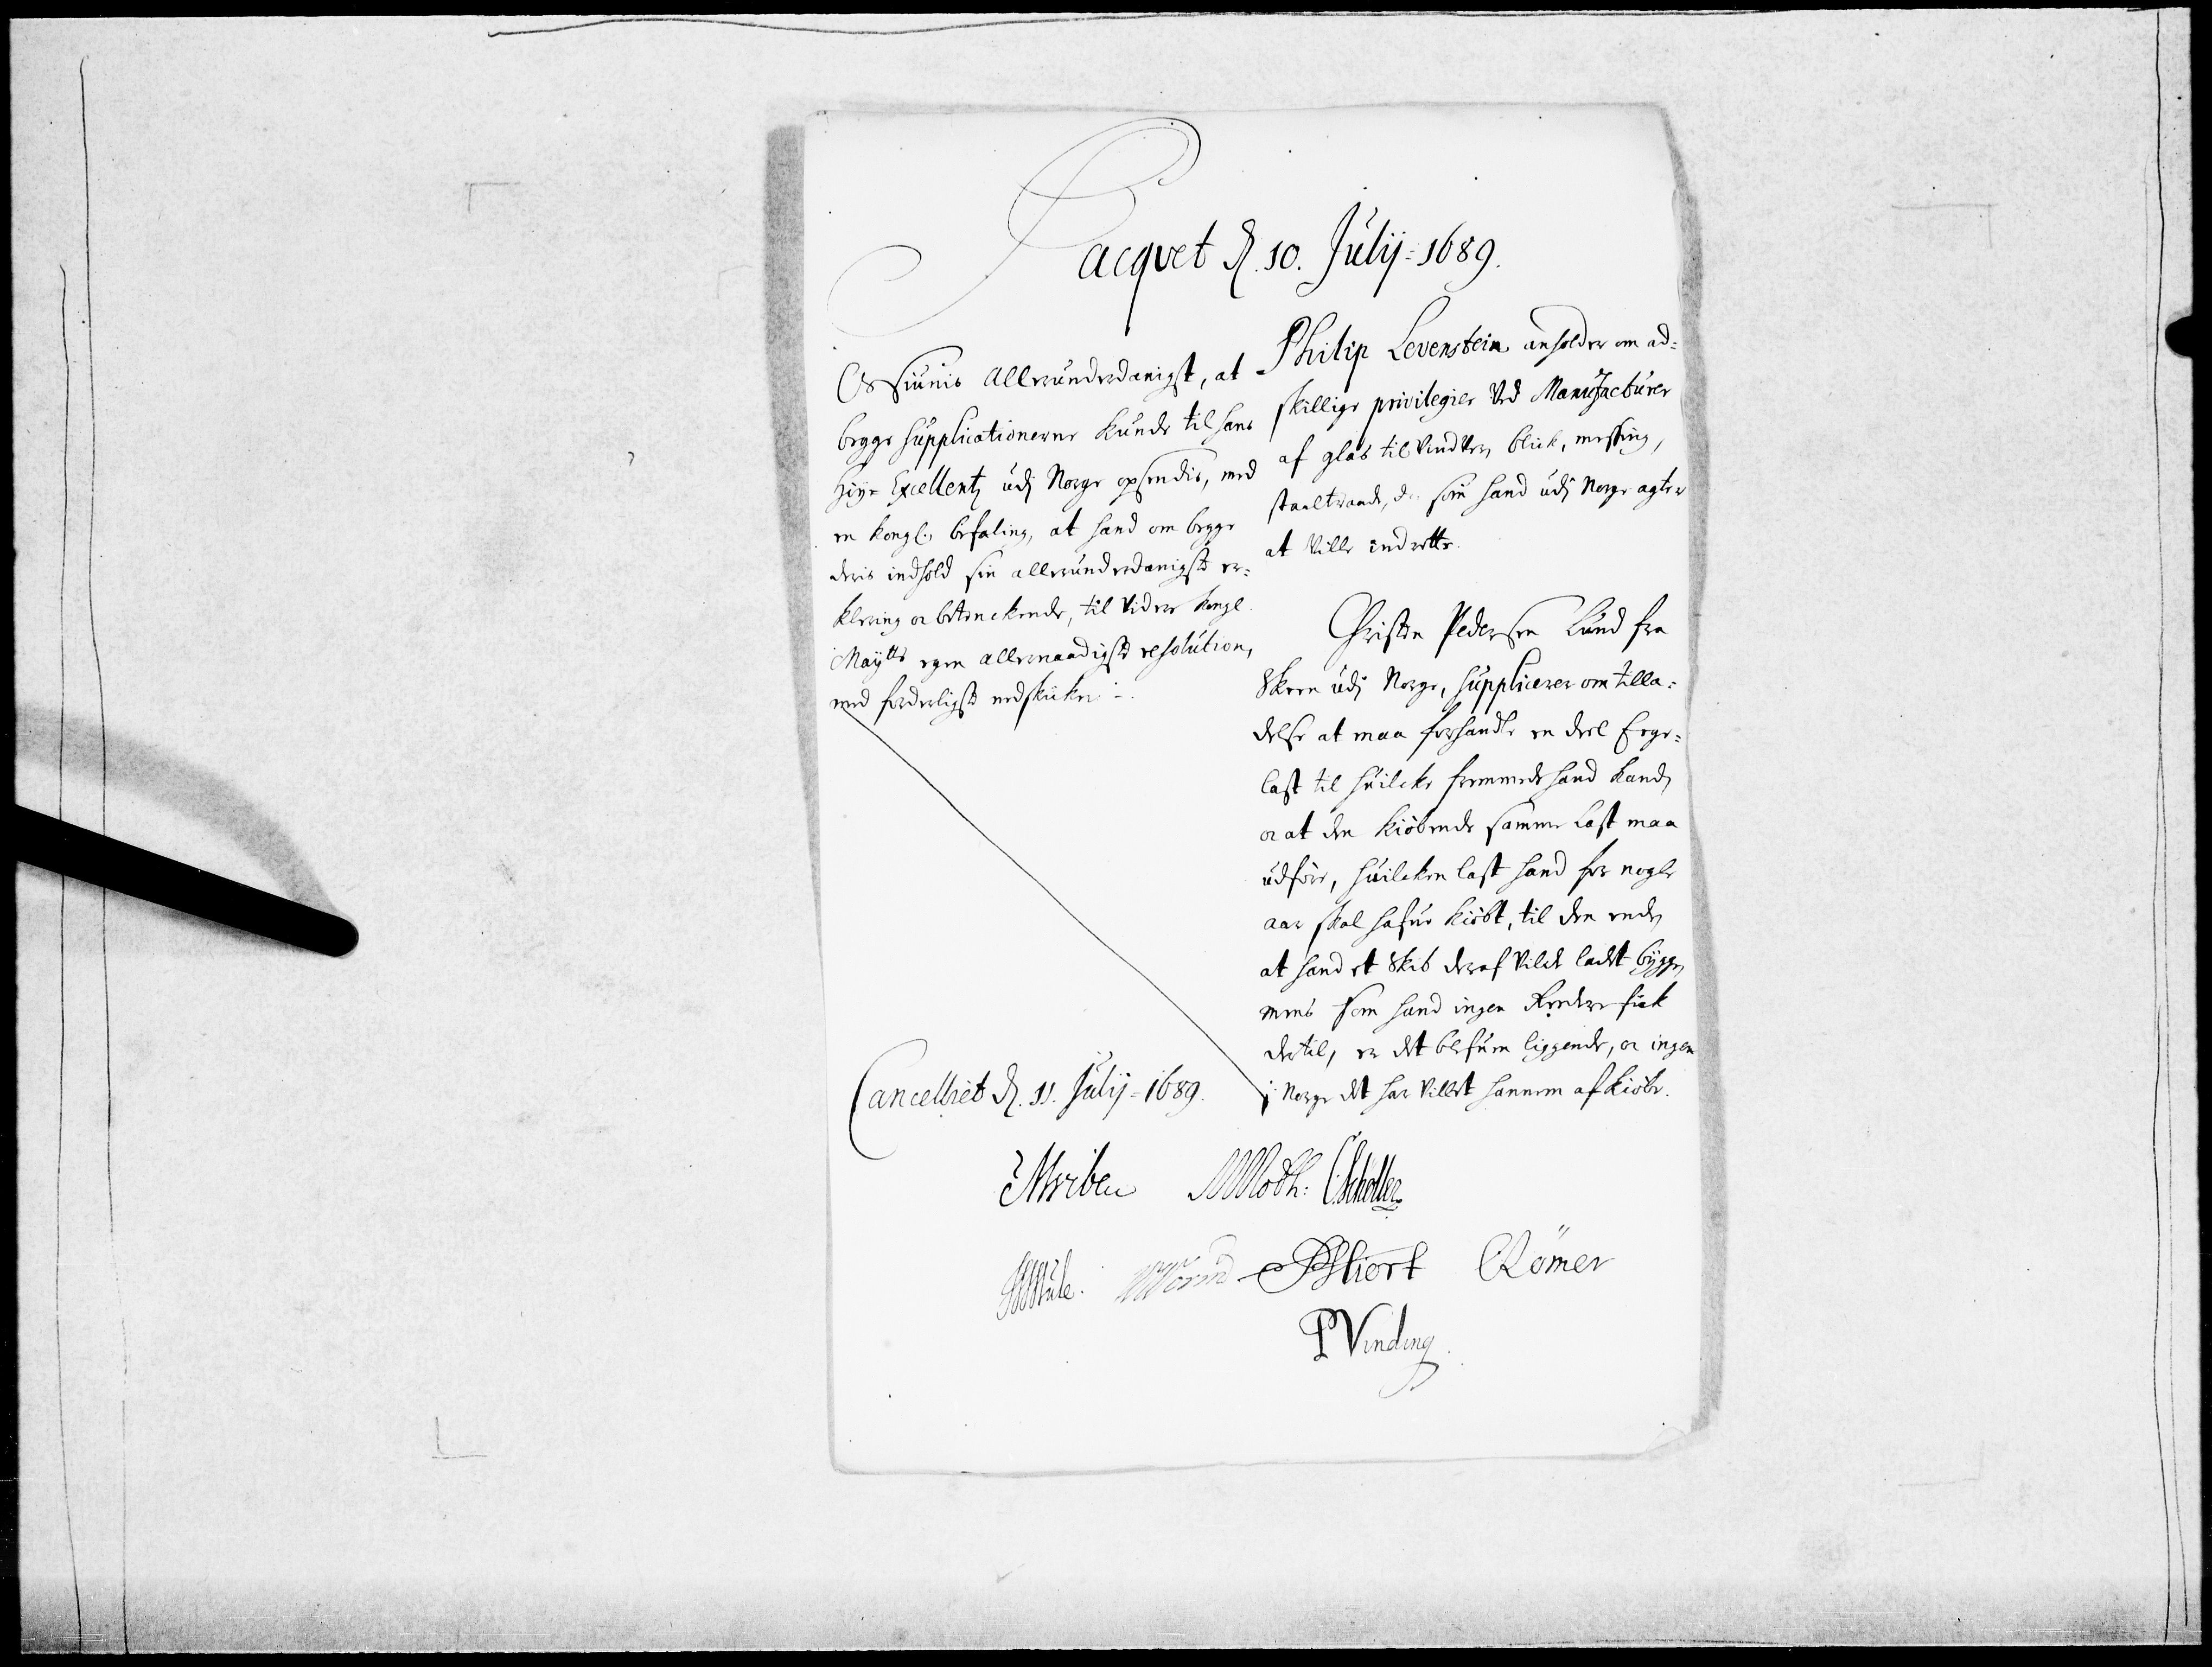 Pacqvet d. 10. Julij = 1689.
Os siunis allerunderdanigst, at
begge supplicationerne kunde til hans
Høÿe Excellentz udj Norge opsendis, med
en kongl: befaling, at hand om begge
deris indhold sin allerunderdanigste er-
klering oc betenckende, til videre kongl.
Maÿtts egen allernaadigste resolution,
med forderligste nedskicker.
Philip Levenstein anholder om ad-
skillige privilegier ved Manufacturer
af glas til vinduer, blick, messing,
staaltraade, &c. som hand udj Norge agter
at ville indrette.
Christen Pedersen Lund fra
Skeen udj Norge, supplicerer om tilla-
delse at maa forhandle en deel Eege-
last til huilcke fremmede hand kand,
oc at den kiøbende samme last maa
udføre, huilcken last hand for nogle
aar skal hafue kiøbt, til den ende,
at hand et Skib deraf vilde ladet bÿgge,
mens som hand ingen Reedere fick
dertil, er det blefuen liggende, oc ingen
i Norge det har villet hannem afkiøbe.
Cancelliet d. 11. Julij = 1689.
Moth: CSchøller
Mule. Worm PHiort ORömer
PVinding.